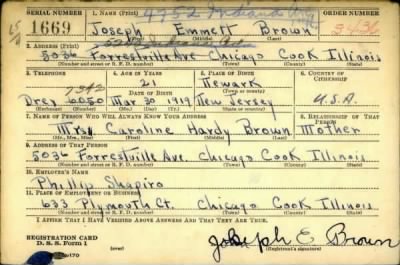 SERIAL NUMBER 1. NAME (Print) 4752 Indiana Ave ORDER NUMBER
1669 Joseph Emmett Brown 3436
(First) (Middle) (Last)
2. ADDRESS (Print)
5036 Forrestville Ave Chicago Cook Illinois
(Number and street or R. F. D. number) (Town) (County) (State)
3. TELEPHONE 4. AGE IN YEARS 5. PLACE OF BIRTH 6. COUNTRY OF CITIZENSHIP
7342 21 Newark
DATE OF BIRTH (Town or county)
Drex 6050 Mar 30 1919 New Jersey U.S.A.
(Exchange) (No.) (Mo.) (Day) (Yr.) (State or country)
7. NAME OF PERSON WHO WILL ALWAYS KNOW YOUR ADDRESS 8. RELATIONSHIP OF THAT PERSON
Mrs. Caroline Hardy Brown Mother
(Mr., Mrs., Miss) (First) (Middle) (Last)
9. ADDRESS OF THAT PERSON
5036 Forrestville Ave. Chicago Cook Illinois
(Number and street or R. F. D. number) (Town) (County) (State)
10. EMPLOYER'S NAME
Phillip Shapiro
11. PLACE OF EMPLOYMENT OR BUSINESS
633 Plymouth Ct. Chicago Cook Illinois
(Number and street or R. F. D. number) (Town) (County) (State)
I AFFIRM THAT I HAVE VERIFIED ABOVE ANSWERS AND THAT THEY ARE TRUE.
REGISTRATION CARD
D. S. S. Form 1 (over) Joseph E. Brown
(Registrant's signature)